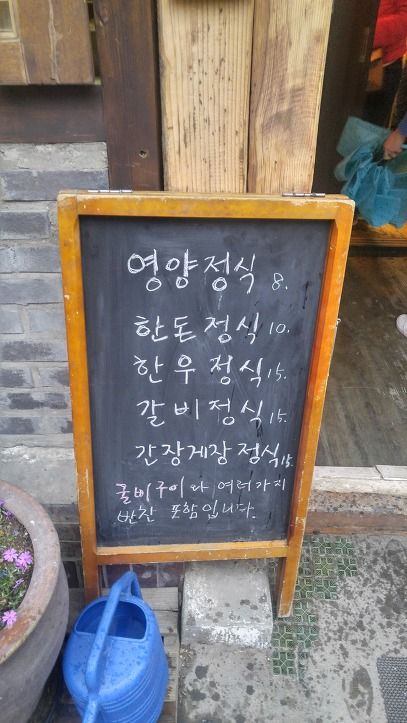 영양정식 8.
한돈정식 10.
한우정식 15.
갈비정식 15.
간장게장정식 15.
굴비구이와 여러가지
반찬 포함입니다.